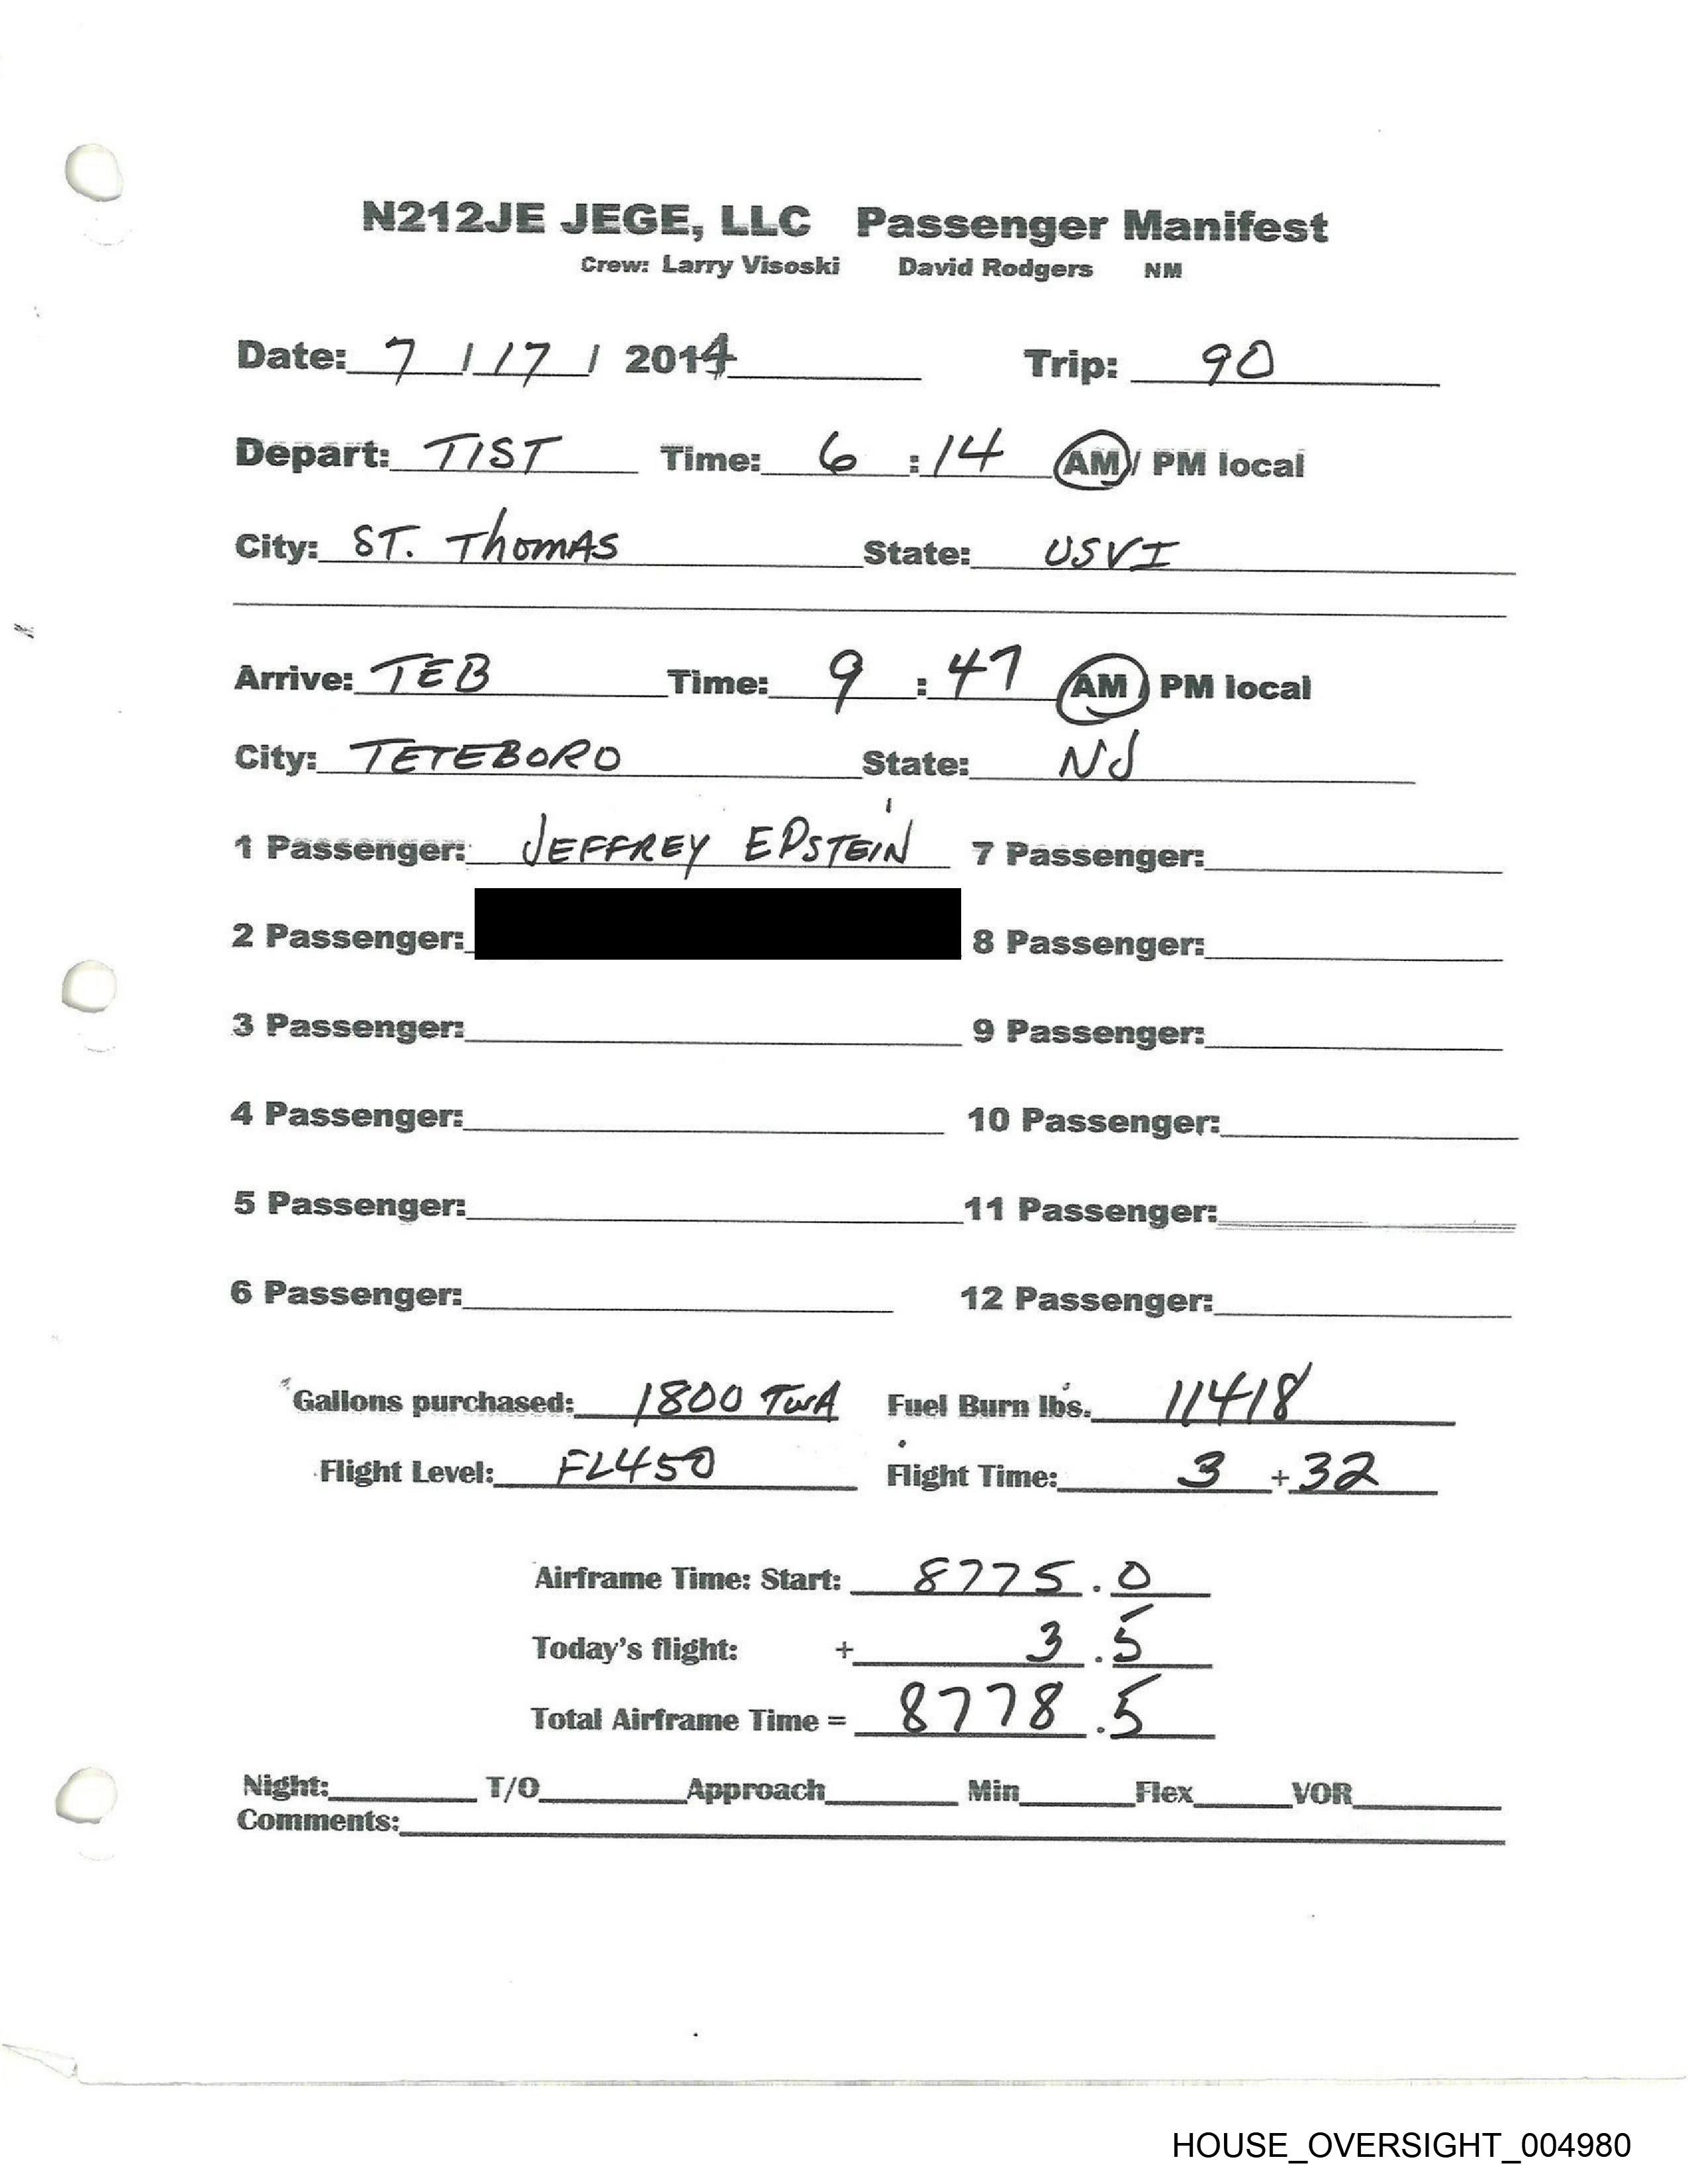 N212JE JEGE, LLC Passenger Manifest
Crew: Larry Visoski David Rodgers NM
Date: 7 / 17 / 2014 Trip: 90
Depart: TIST Time: 6 : 14 AM / PM local
City: ST. ThomAS State: USVI
Arrive: TEB Time: 9 : 47 AM / PM local
City: TETEBORO State: NJ
1 Passenger: JEFFREY EPSTEIN 7 Passenger:
2 Passenger: 8 Passenger:
3 Passenger: 9 Passenger:
4 Passenger: 10 Passenger:
5 Passenger: 11 Passenger:
6 Passenger: 12 Passenger:
Gallons purchased: 1800 TWA Fuel Burn lbs. 11418
Flight Level: FL450 Flight Time: 3 + 32
Airframe Time: Start: 8775.0
Today's flight: + 3.5
Total Airframe Time = 8778.5
Night: T/O Approach Min Flex VOR
Comments:
HOUSE_OVERSIGHT_004980